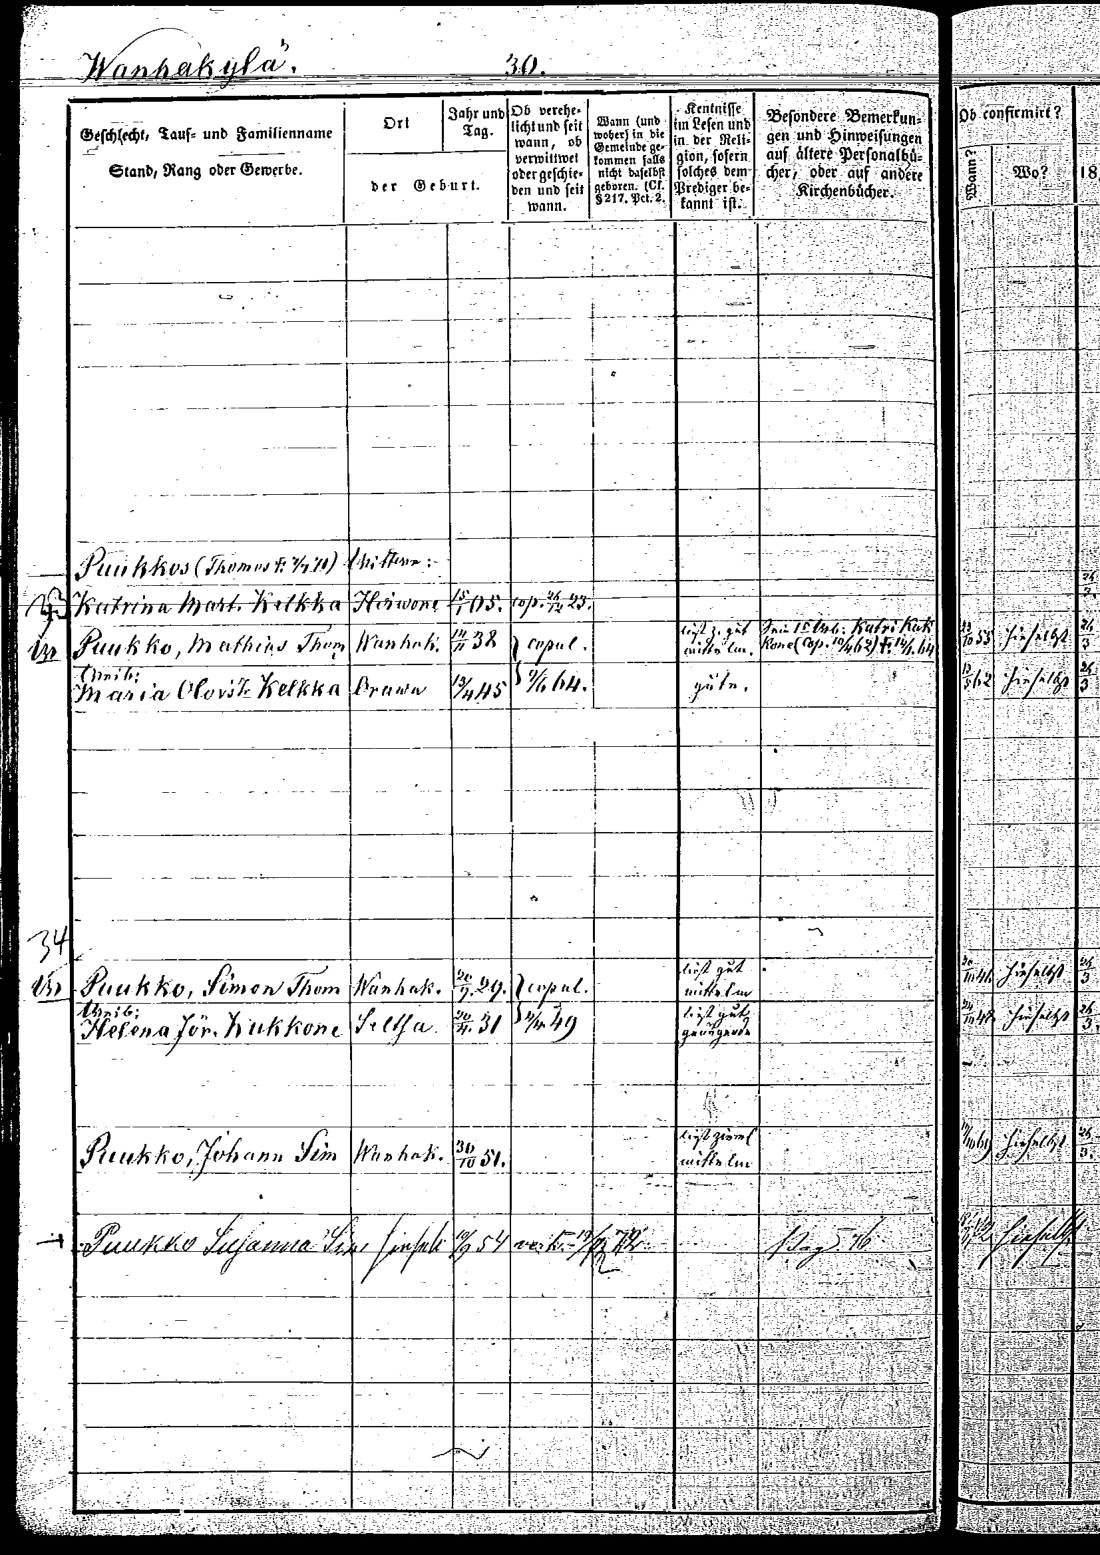 Wanhakylä. 30.
Geschlecht, Tauf- und Familienname
Stand, Rang oder Gewerbe.
Ort
der Geburt.
Jahr und
Tag.
Ob verehe-
licht und seit
wann, ob
verwittwet
oder geschie-
den und seit
wann.
Wann (und
woher) in die
Gemeinde ge-
kommen falls
nicht daselbst
geboren. (Cf.
§ 217. Pct. 2.
Kentnisse
im Lesen und
in der Reli-
gion, sofern
solches dem
Prediger be-
kannt ist.
Besondere Bemerkun-
gen und Hinweisungen
auf ältere Personalbü-
cher, oder auf andere
Kirchenbücher.
Ob confirmirt?
Wann?
Wo?
18
Puukkos (Thomas Wittwe:
33 Katrina Mart. Kelkka 15/1 05. cop. 26/12 23.
Puukko, Mathias Thom Wanhak. 38 copul. liest z. gut mittelm. Sein 1stes Weib: Katri Kak
Kone (cop. 62) 64 55 hieselbst 26/3
Weib:
Maria Olovst. Kelkka 45 64. gute. 62 hieselbst 26/3
34
Puukko, Simon Thom Wanhak. 20/9. 29. copul. liest gut mittelm 46 hieselbst 26/3
Weib:
Helena Jör. Kukkone 31 49 liest gut, genügende 48 hieselbst 26/3.
Puukko, Johann Sim Wanhak. 30/10 51. liest ziemel mittelm hieselbst 26/3.
Puukko Susanna Sim hieselb 54 Pag. 76 hieselbst